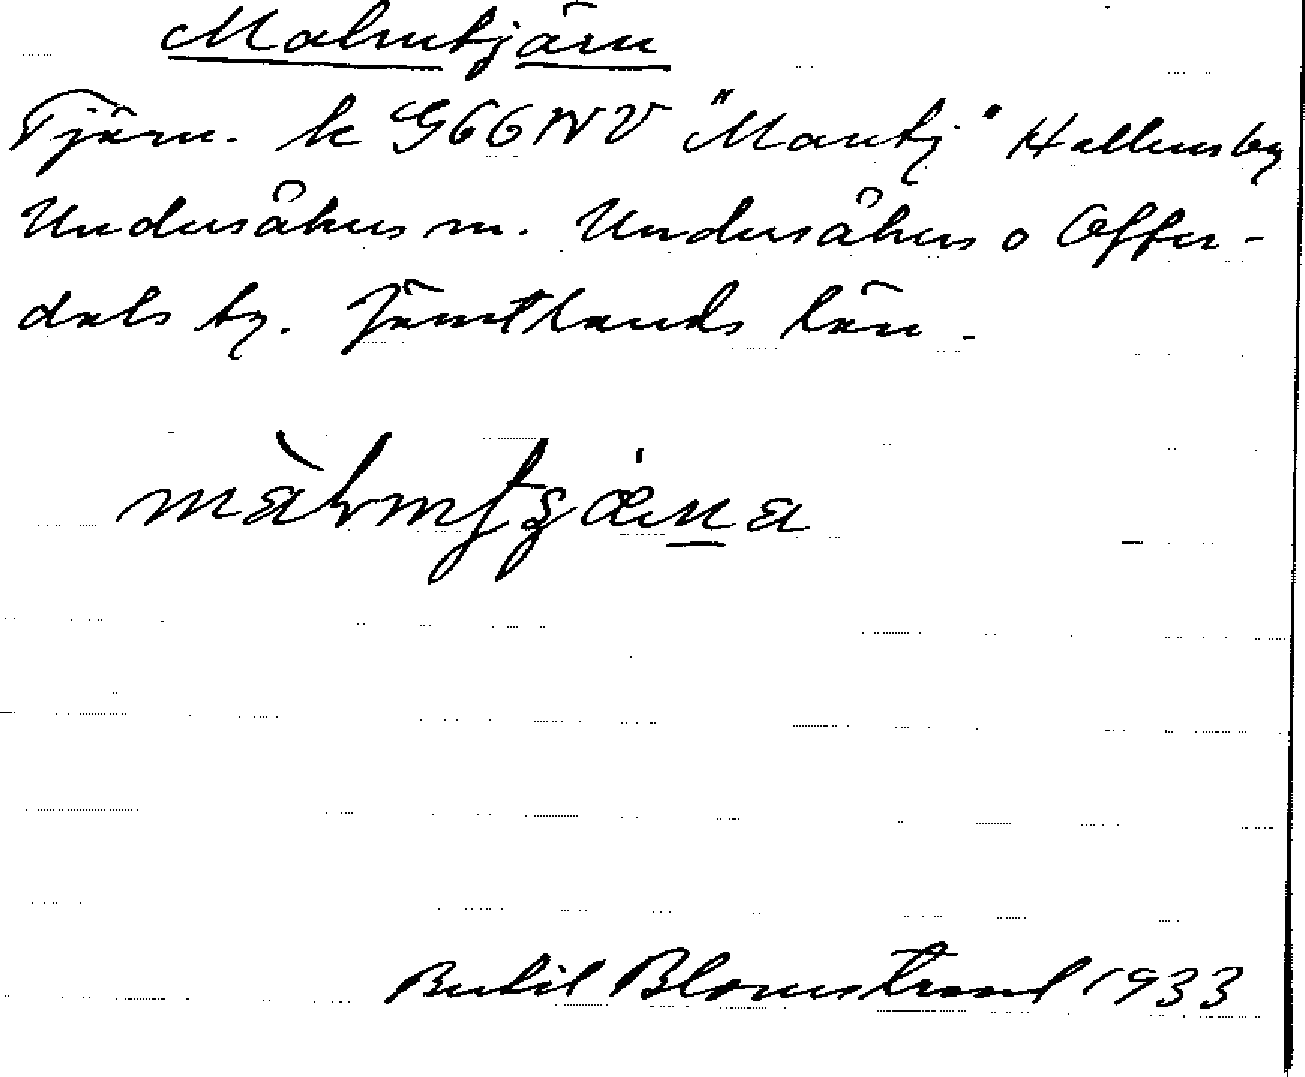 Malmtjärn
Tjärn. k G66NV "Mantj." Hallens by
Undersåkers m. Undersåkers o Offer-
dals tg. Jämtlands län.
Bertil Blomstrand 1933